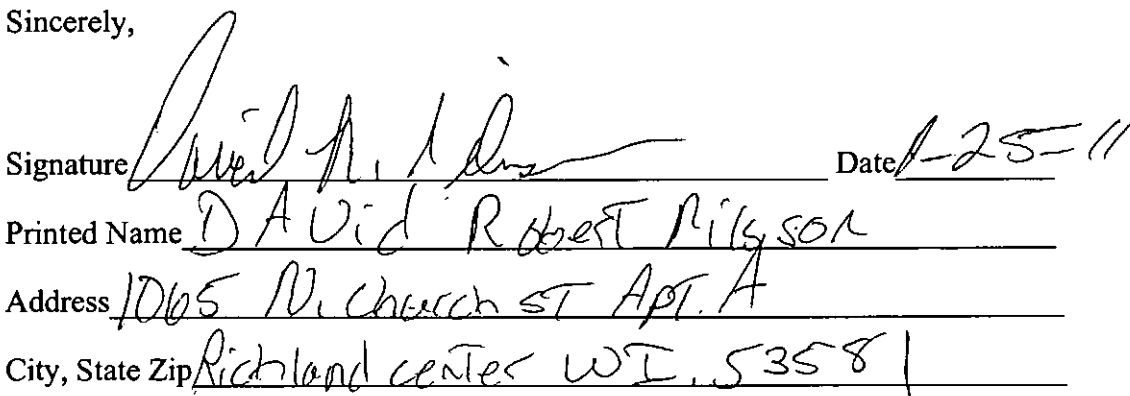 Sincerely,
Signature David R. Date 1-25-11
Printed Name DAVid RobeRT
Address 1065 N. Church ST APT. A
City, State Zip Richland cenTer WI. 53581